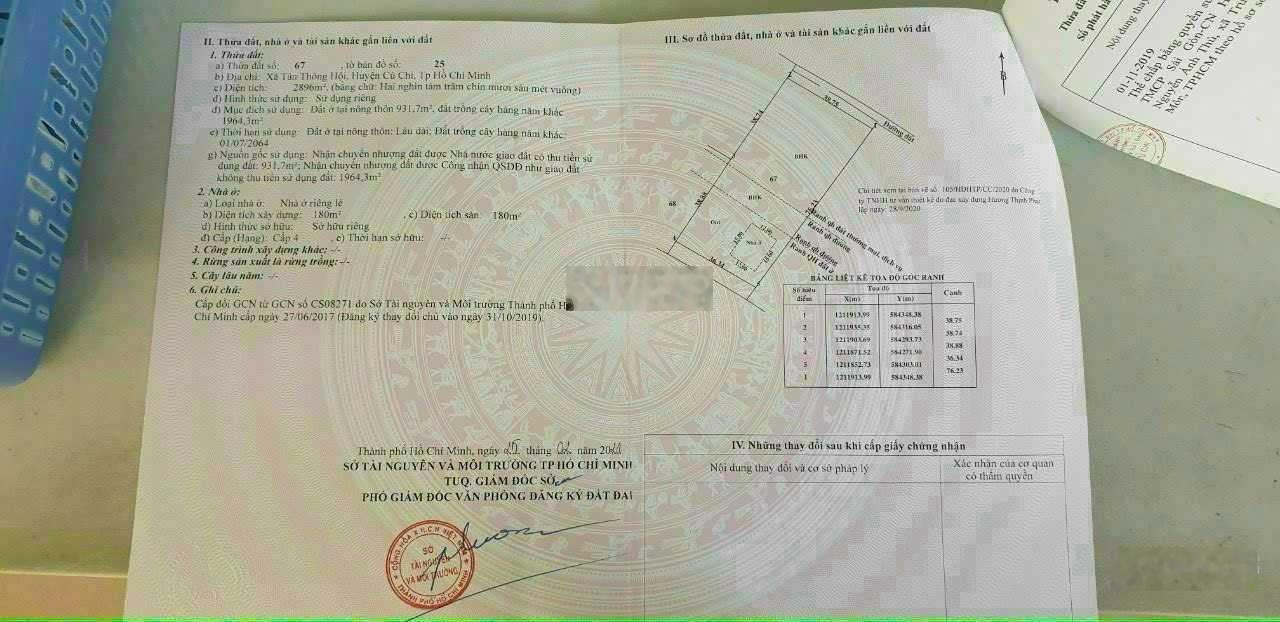 II. Thửa đất, nhà ở và tài sản khác gắn liền với đất
1. Thửa đất:
a) Thửa đất số: 67 , tờ bản đồ số: 25
b) Địa chỉ: Xã Tân Thông Hội, Huyện Củ Chi, Tp Hồ Chí Minh
c) Diện tích: 2896m², (bằng chữ: Hai nghìn tám trăm chín mươi sáu mét vuông)
d) Hình thức sử dụng: Sử dụng riêng
đ) Mục đích sử dụng: Đất ở tại nông thôn 931,7m², đất trồng cây hàng năm khác
1964,3m²
e) Thời hạn sử dụng: Đất ở tại nông thôn: Lâu dài; Đất trồng cây hàng năm khác:
01/07/2064
g) Nguồn gốc sử dụng: Nhận chuyển nhượng đất được Nhà nước giao đất có thu tiền sử
dụng đất: 931,7m²; Nhận chuyển nhượng đất được Công nhận QSDĐ như giao đất
không thu tiền sử dụng đất: 1964,3m²
2. Nhà ở:
a) Loại nhà ở: Nhà ở riêng lẻ
b) Diện tích xây dựng: 180m² , c) Diện tích sàn: 180m²
d) Hình thức sở hữu: Sở hữu riêng
đ) Cấp (Hạng): Cấp 4 , e) Thời hạn sở hữu: -/-
3. Công trình xây dựng khác: -/-
4. Rừng sản xuất là rừng trồng: -/-
5. Cây lâu năm: -/-
6. Ghi chú:
Cấp đổi GCN từ GCN số CS08271 do Sở Tài nguyên và Môi trường Thành phố H
Chí Minh cấp ngày 27/06/2017 (Đăng ký thay đổi chủ vào ngày 31/10/2019).
Thành phố Hồ Chí Minh, ngày tháng 02 năm
SỞ TÀI NGUYÊN VÀ MÔI TRƯỜNG TP HỒ CHÍ MINH
TUQ. GIÁM ĐỐC SỞ
PHÓ GIÁM ĐỐC VĂN PHÒNG ĐĂNG KÝ ĐẤT ĐAI
CỘNG HÒA X.H.C.N VIỆT NAM
SỞ
TÀI NGUYÊN
VÀ MÔI TRƯỜNG
THÀNH PHỐ HỒ CHÍ MINH
III. Sơ đồ thửa đất, nhà ở và tài sản khác gắn liền với đất
B
38.75
Đường đất
38.74
BHK
67
BHK
68
38.88
Ranh qh đất thương mại, dịch vụ
Ranh qh đường
Ranh qh đường
Ranh QH đất ở
36.34
Chi tiết xem tại bản vẽ số 105/HĐHTP/CC/2020 do Công
ty TNHH tư vấn thiết kế đo đạc xây dựng Hương Thịnh Phát
lập ngày 28/9/2020
BẢNG LIỆT KÊ TỌA ĐỘ GÓC RANH
Số hiệu điểm Tọa độ Cạnh
X(m) Y(m)
1 1211913.99 584348.38
38.75
2 1211935.35 584316.05
38.74
3 1211903.69 584293.73
38.88
4 1211871.52 584271.90
36.34
5 1211852.73 584303.01
76.23
1 1211913.99 584348.38
IV. Những thay đổi sau khi cấp giấy chứng nhận
Nội dung thay đổi và cơ sở pháp lý
Xác nhận của cơ quan
có thẩm quyền
Thửa đất
Số phát hà
Nội dung thay
01-11-2019
Thế chấp bằng quyền sử
TMCP Sài Gòn-CN
Nguyễn Anh Thủ, xã Tru
Môn, TPHCM theo hồ sơ số